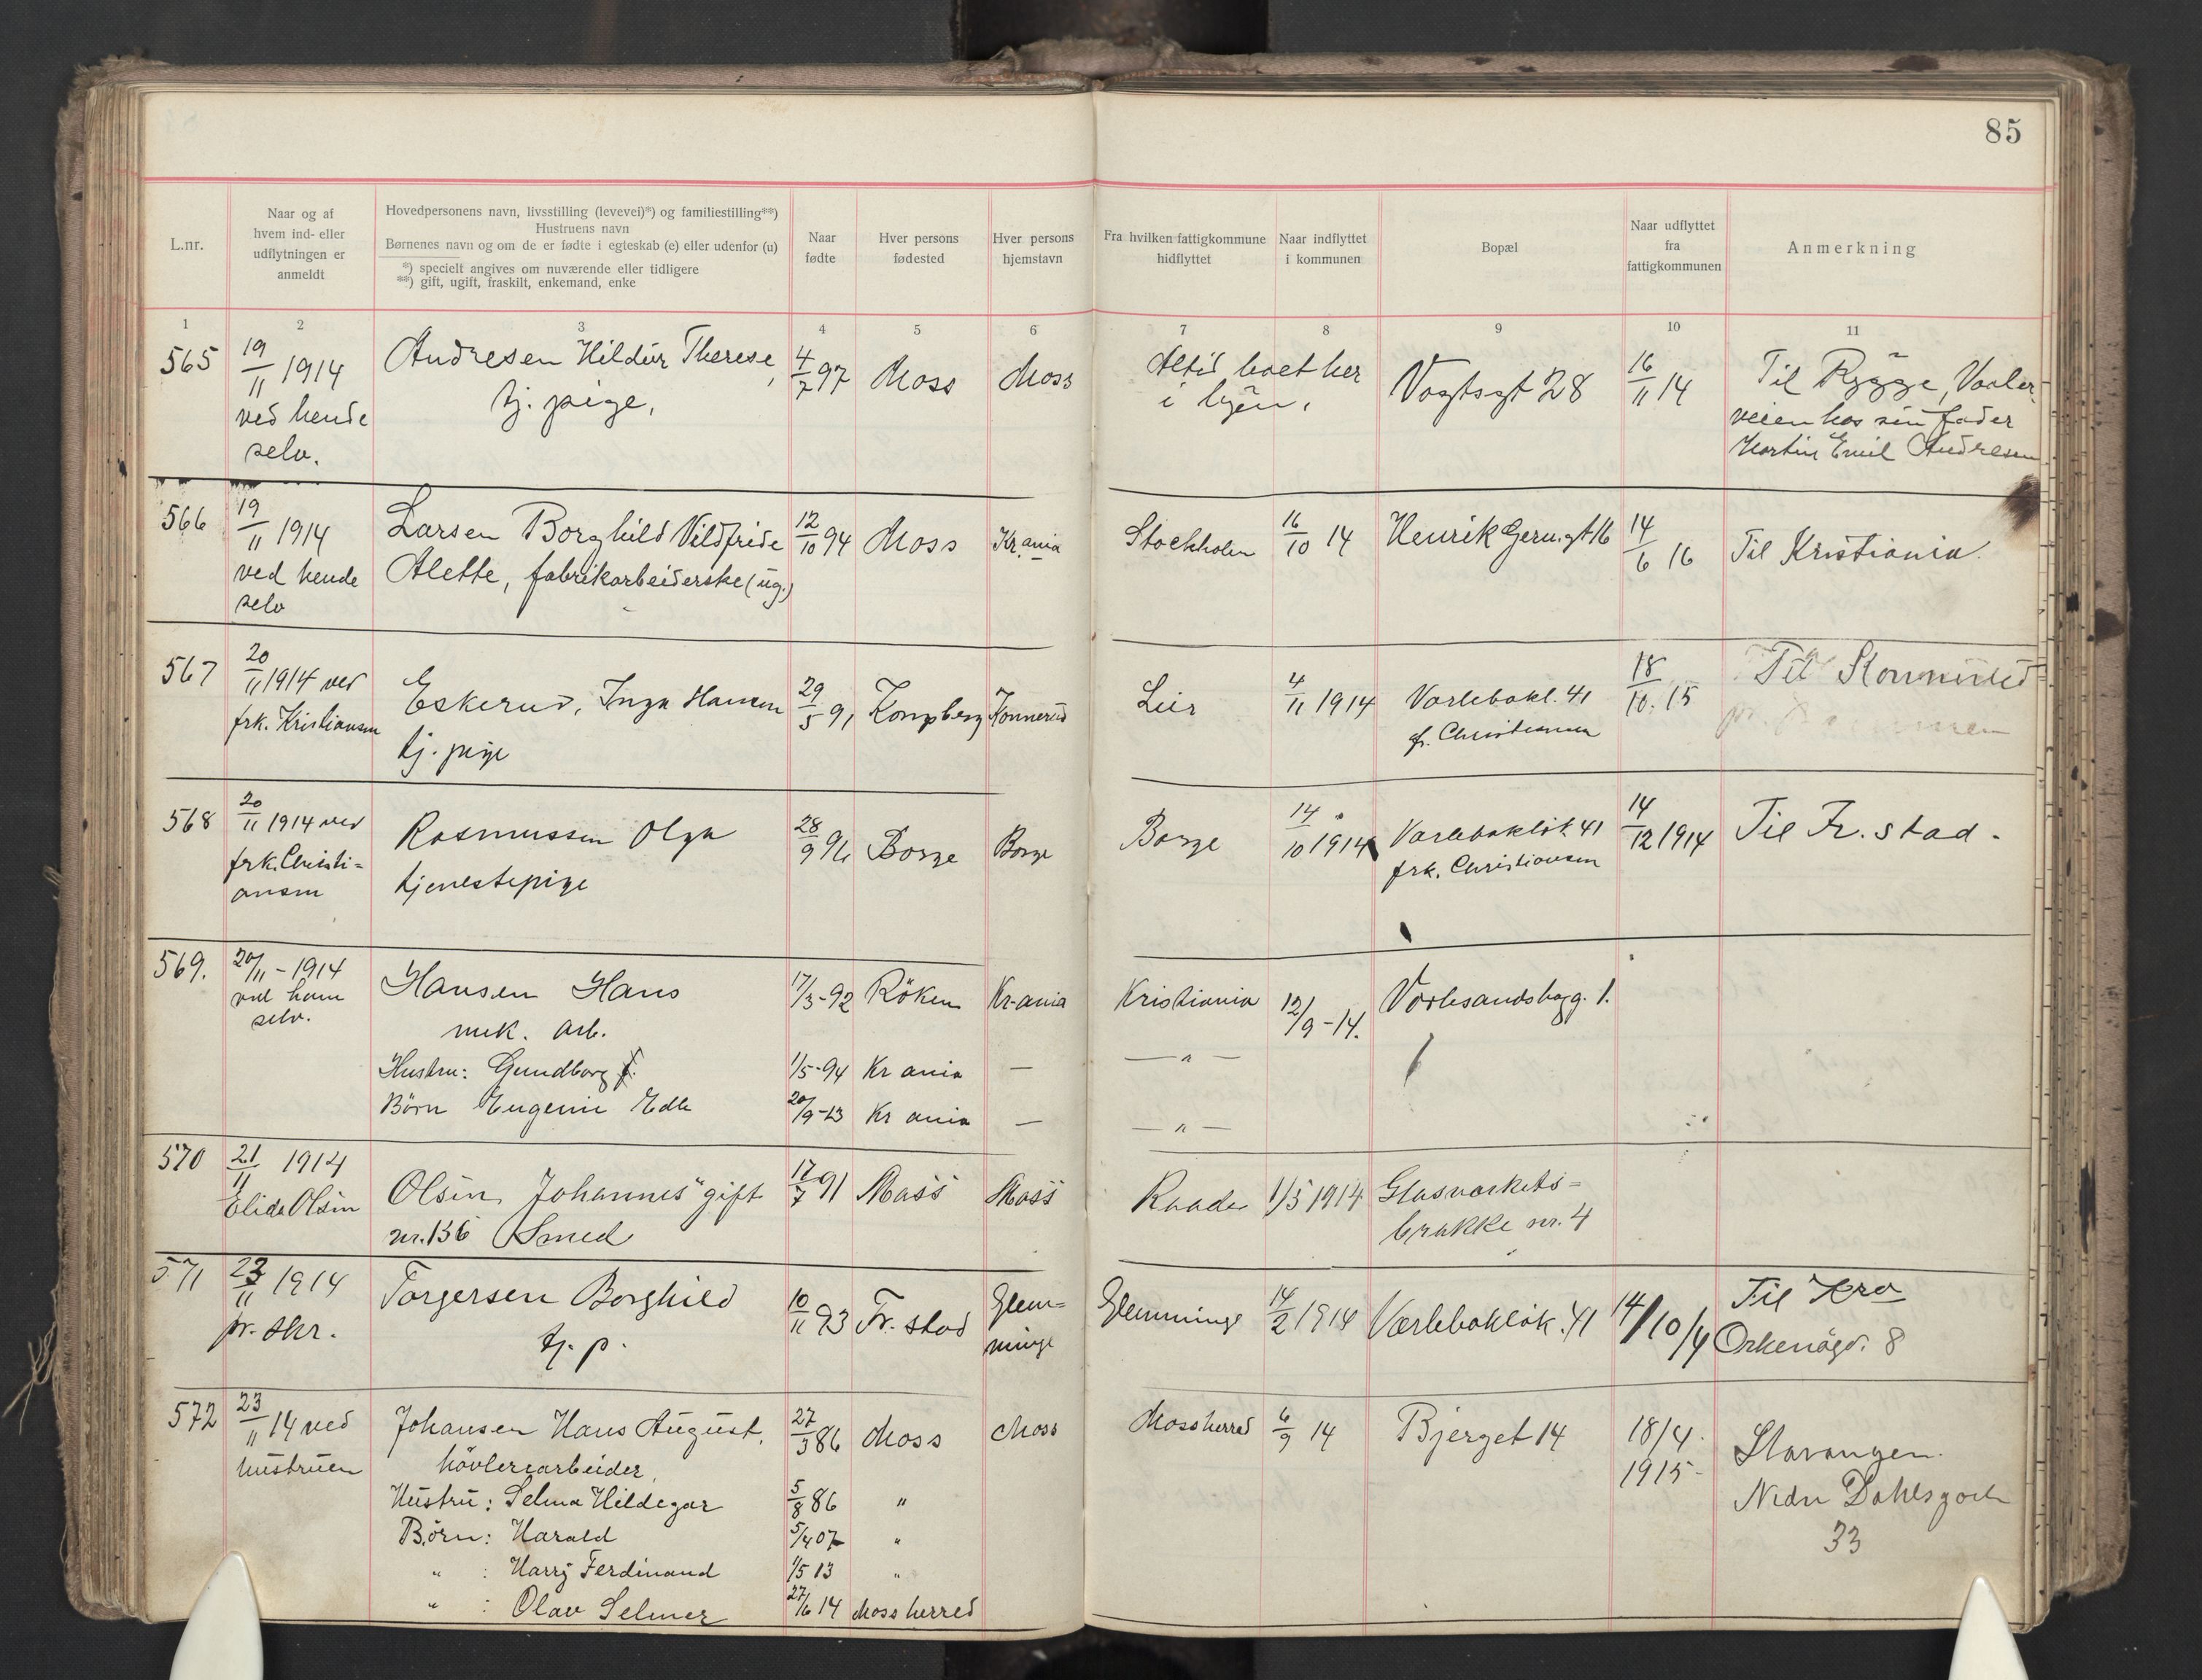 85
L.nr.
Naar og af
hvem ind- eller
udflytningen er
anmeldt
Hovedpersonens navn, livsstilling (levevei)*) og familiestilling**)
Hustruens navn
Børnenes navn og om de er fødte i egteskab (e) eller udenfor (u)
*) specielt angives om nuværende eller tidligere
**) gift, ugift, fraskilt, enkemand, enke
Naar
fødte
Hver persons
fødested
Hver persons
hjemstavn
Fra hvilken fattigkommune
hidflyttet
Naar indflyttet
i kommunen
Bopæl
Naar udflyttet
fra
fattigkommunen
Anmerkning
1 2 3 4 5 6 7 8 9 10 11
565 19/11 1914 Andresen Hildur Therese, 4/7 97 Moss Moss Altid boet her Vogtsgt 28 16/11 14 Til Rygge, Vaaler-
ved hende tj. pige, i byen, veien hos sin fader
selv. Martin Emil Andresen
566 19/11 1914 Larsen Borghild Vildfride 12/10 94 Moss Kr.ania Stockholm 16/10 14 Henrik Gern.gt 16 14/6 16 Til Kristiania.
ved hende Alette, fabrikarbeiderske (ug.)
selv
567 20/11 1914 ved Eskerud, Inga Hansen 29/5 91 Kongsberg Konnerud Lier 4/11 1914 Varlebakl. 41 18/10.15 Til Konnerud
frk. Kristiansen tj. pige fr. Christiansen
568 20/11 1914 ved Rasmussen Olga 28/9 96 Borge Borge Borge 14/10 1914 Varlebaklök. 41 14/12 1914 Til Fr.stad.
frk. Christi= tjenestepige frk. Christiansen
ansen
569. 20/11 - 1914 Hansen Hans 17/3-92 Röken Kr-ania Kristiania 12/9-14. Varlesandsbagg. 1.
ved ham mek. arb.
selv.
Hustru: Gundborg 1/5-94 Kr ania — — " —
Börn Eugenie Edle 20/9-13 Kr ania — — " —
570 21/11 1914 Olsen, Johannes gift 17/7 91 Moss Moss Raade 1/5 1914 Glasværkets=
Elida Olsen nr. 136 Smed brakke nr. 4
571 23/11 1914 Torgersen Borghild 10/11 93 Fr. stad Glem= Glemminge 14/2 1914 Værlebaklök. 41 14/10/4 Til Kra
pr. skr. tj. p. minge Orkenögd. 8
572 23/11 14 ved Johansen Hans August, 27/3 86 Moss Moss Moss herred 6/9 14 Bjerget 14 18/4. Stavanger.
hustruen hövleriarbeider, 1915- Nedre Dahlsgade
Hustru: Selma Hildegar 5/8 86 " 33
Børn: Harald 5/4 07 "
" : Harry Ferdinand 1/5 13 "
" : Olav Selmer 27/6 14 Moss herred